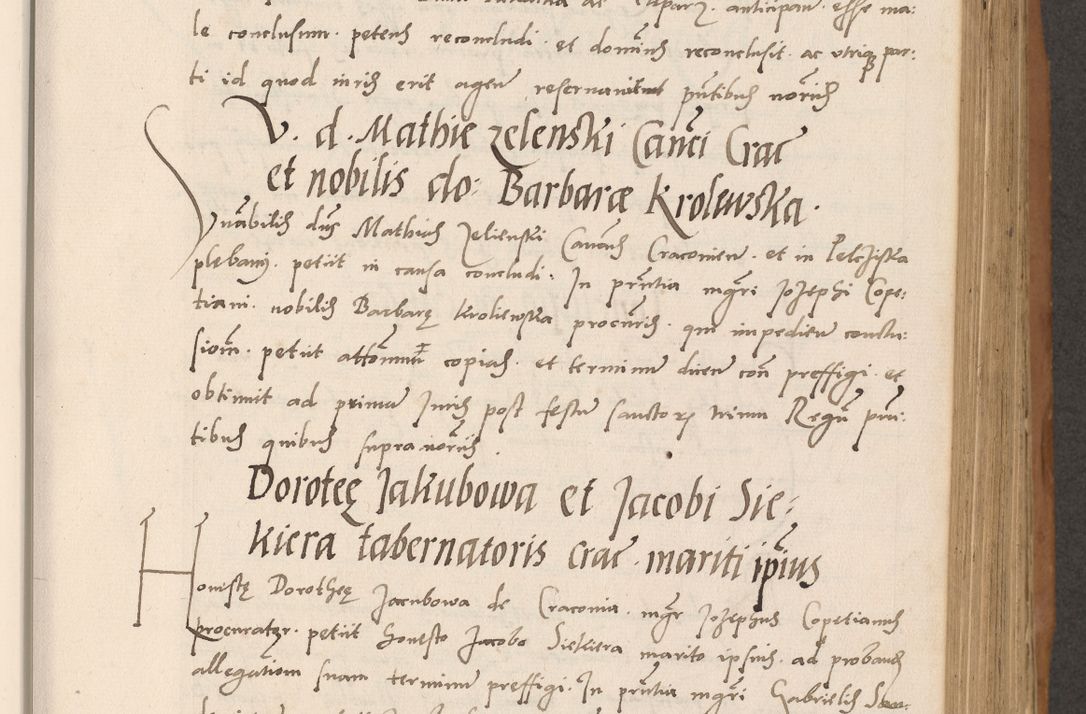 le conclusum. petens reconcludi. et dominus reconclusit. ac utriq par:
ti id quod iuris erit agen reservavit pntibus notariis
V. d. Mathie zelenski Canci Crac
et nobilis do: Barbaræ Krolewska.
Vnabilis dns Mathias Zelienski Canonus Cracovien. et in Pelcziska
plebanus. petiit in causa concludi. In pntia mgri Jozephi Cope:
tiani. nobilis Barbarę Kroliewska procuris. qui impedien conclu:
sionem. petiit copias. et terminum dicen con preffigi. et
obtinuit ad primum Juris post festum sanctorum trium Regum pnn:
tibus quibus supra notariis.
Doroteę Jakubowa et Jacobi Sie:
kiera tabernatoris crac mariti ipius
Honestę Dorotheę Jacubowa de Cracovia. mgr Jozephus Copetianus
procurator. petiit honesto Jacobo Siekiera marito ipsius. ad proband
allegationem suam terminum preffigi. In pntia mgri Gabrielis